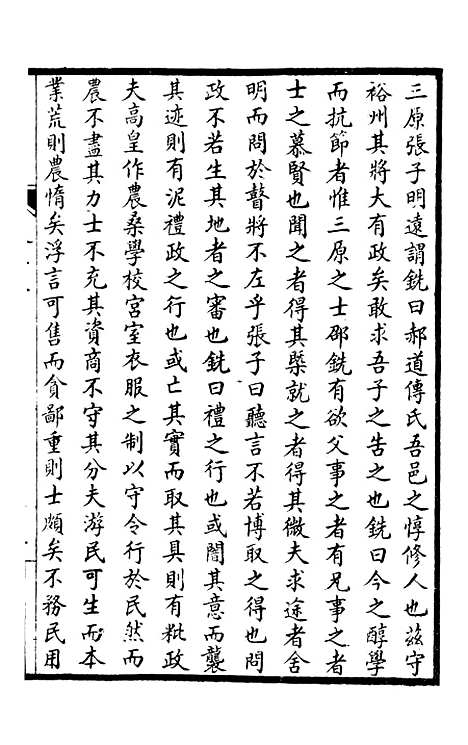 三原張子明遠謂銑曰郝道傳氏吾邑之惇修人也茲守
裕州其將大有政矣敢求吾子之告之也銑曰今之醇學
而抗節者惟三原之士邵銑有欲父事之者有兄事之者
士之慕賢也聞之者得其槩就之者得其微夫求途者舍
明而問於瞽將不左乎張子曰聽言不若博取之得也問
政不若生其地者之審也銑曰禮之行也或闇其意而襲
其迹則有泥禮政之行也或亡其實而取其具則有粃政
夫高皇作農桑學校宮室衣服之制以守令行於民然而
農不盡其力士不充其資商不守其分夫游民可生而本
業荒則農惰矣浮言可售而貪鄙重則士頗矣不務民用